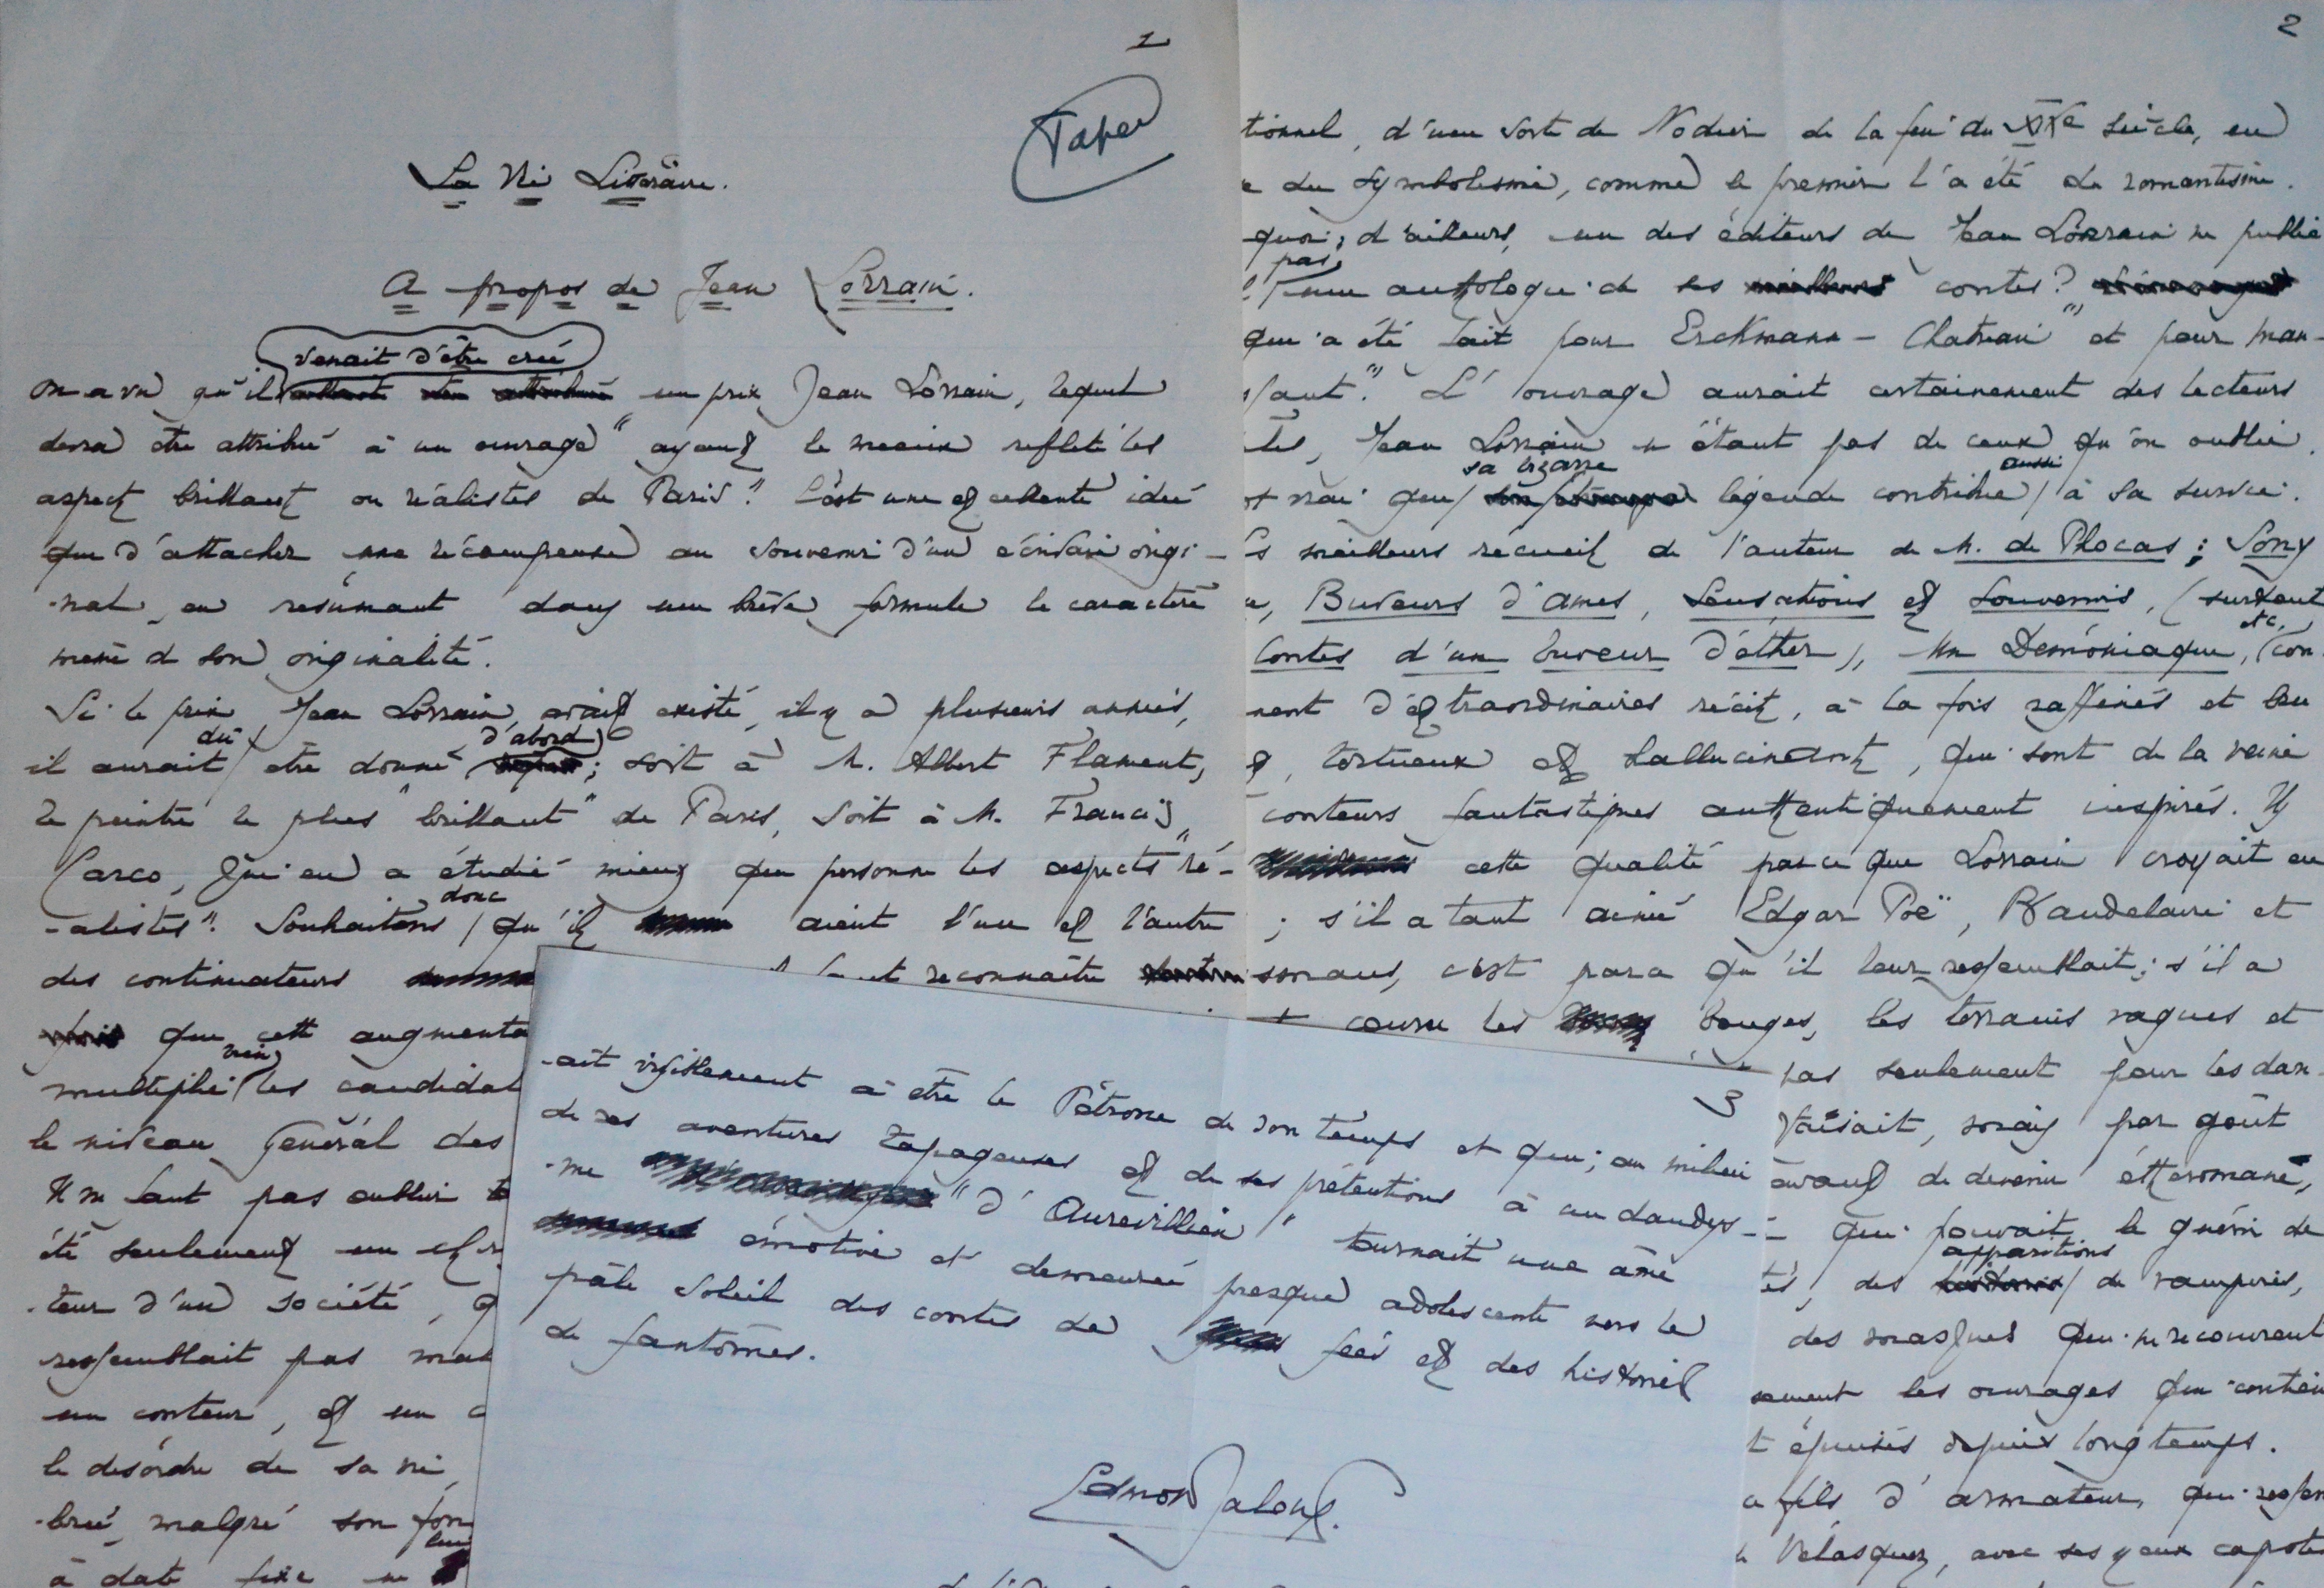 1
Taper
La Vie Littéraire.
A propos de Jean Lorrain.
venait d'être créé
On a vu qu'il un prix Jean Lorrain, lequel
devra être attribué à un ourage "ayant le mieux reflété les
aspects brillants ou réalistes de Paris". C'est une excellente idée
que d'attacher une récompense au souvenir d'un écrivain origi-
-nal, en résumant dans une brève formule le caractère
même de son originalité.
Si le prix Jean Lorrain avait existé, il y a plusieurs années,
dû d'abord
il aurait être donné ; soit à M. Albert Flament,
le peintre le plus "brillant" de Paris, soit à M. Francis
Carco, qui en a étudié mieux que personne les aspects "ré-
donc
-alistes". Souhaitons qu'ils aient l'un et l'autre
des continuateurs faut reconnaître
que cette augmenta
multiplié les candidat
le niveau général des
Il ne faut pas oublier
été seulement un
-teur d'une société, q
ressemblait pas mal
un conteur, et un c
le désordre de sa vie
-brée, malgré son
lui
à date fixe
2
tionnel, d'une sorte de Nodier de la fin du XIXe siècle, en
e du symbolisme, comme le premier l'a été du romantisme.
quoi, d'ailleurs, un des éditeurs de Jean Lorrain ne publie
pas
une anthologie de ses meilleurs contes?
qui a été fait pour Erckmann-Chatrian" et pour Mau-
ssant". L'ouvrage aurait certainement des lecteurs
tes, Jean Lorrain n'étant pas de ceux qu'on oublie.
sa bizarre aussi
st vrai que légende contribue à sa survie.
Les meilleurs recueils de l'auteur de M. de Phocas ; Sony
e, Buveurs d'âmes, Sensations et Souvenirs, (surtout
etc.
Contes d'un buveur d'éther), Un Démoniaque, con-
nent d'extraordinaires récits, à la fois raffinés et
, tortueux et hallucinants, qui sont de la veine
conteurs fantastiques authentiquement inspirés. Il
cette qualité parce que Lorrain croyait en
; s'il a tant aimé Edgar Poë, Baudelaire et
, c'est parce qu'il leur ressemblait ; s'il a
couru les bouges, les terrains vagues et
pas seulement pour les dan-
faisait, mais par goût
avant de devenir éthéromane,
qui pouvait le guérir de
apparitions
tés, des de vampires,
des masques qui ne recouvrent
sement les ouvrages qui contien
t épuisés depuis longtemps.
ce fils d'armateur, qui ressem
Vélasquez, avec ses yeux capotés
3
-ait visiblement à être le Pétrone de son temps et qui, au milieu
de ses aventures tapageuses et de ses prétentions à un dandys-
-me "d'Aurevillien" tournait une âme
émotive et demeurée presque adolescente vers le
pâle soleil des contes de fées et des histoires
de fantômes.
Edmond Jaloux.